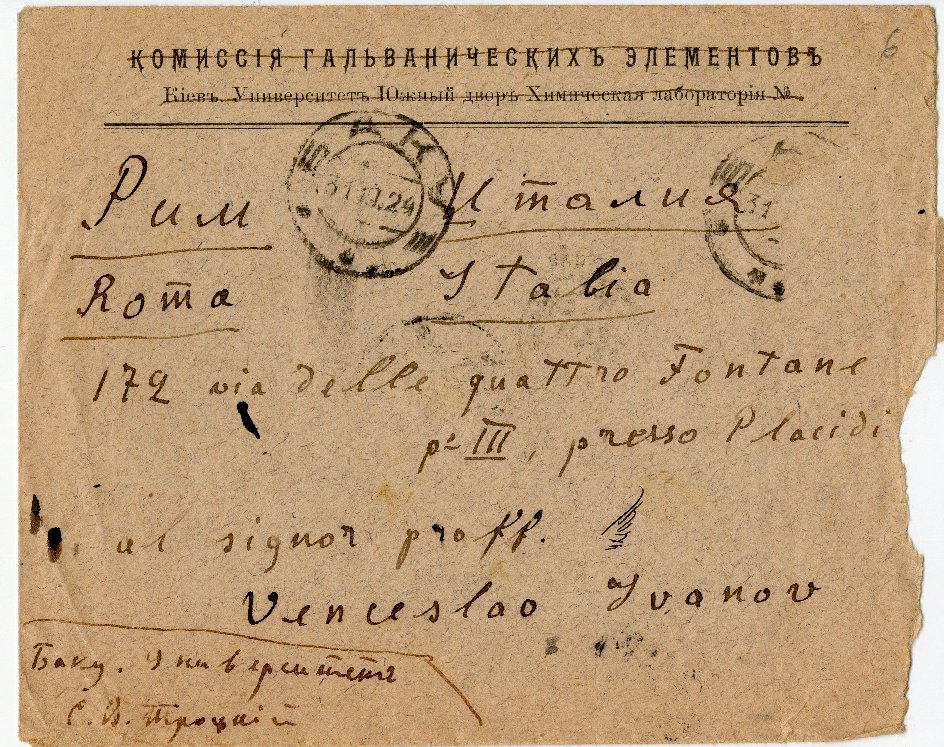 КОМИССІЯ ГАЛЬВАНИЧЕСКИХЪ ЭЛЕМЕНТОВЪ
Кіевъ. Университетъ Южный дворъ Химическая лабораторія №
6
БАКУ
31.12.24
31
Рим Италия
Roma Italia
172 via delle quattro Fontane
pº III, presso Placidi
al signor proff.
Venceslao Ivanov
Баку. Университетъ
С. В. Троцкій